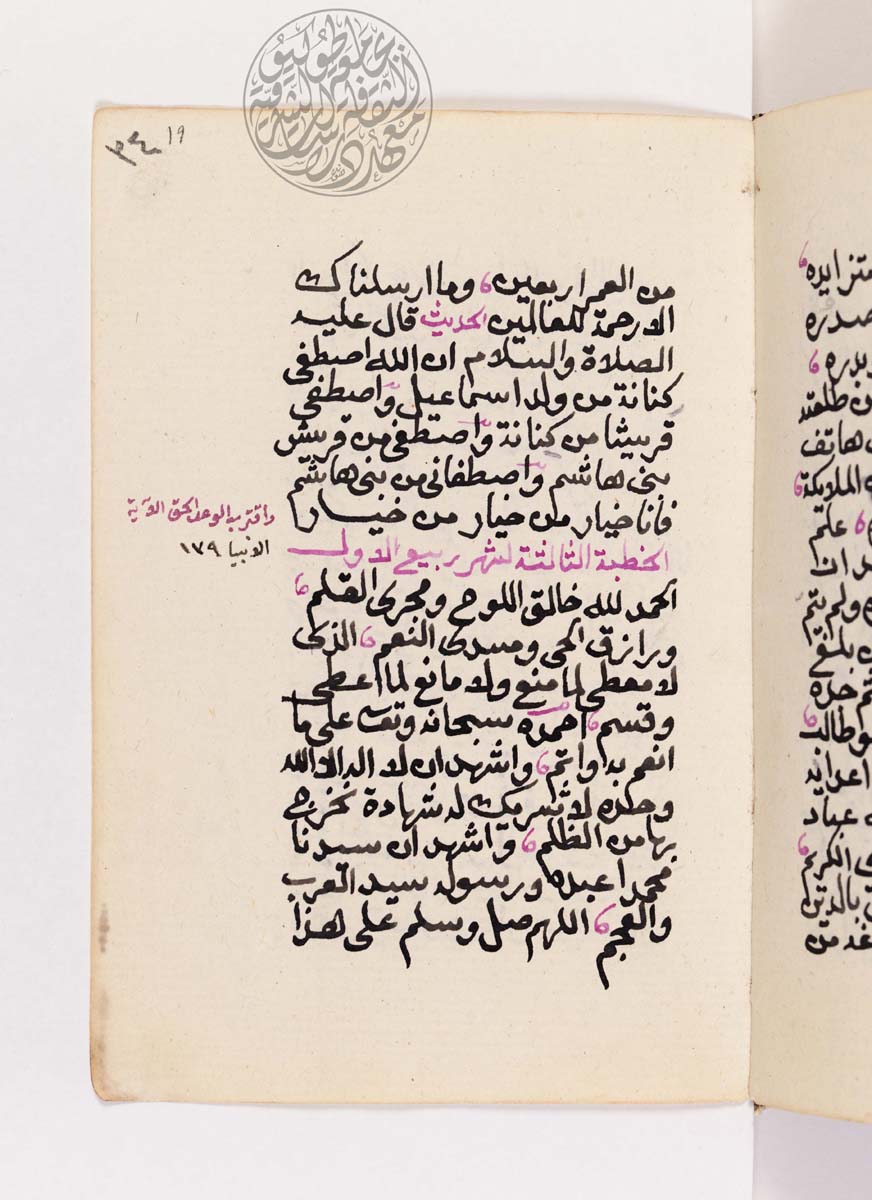 ١٩
٣٤
من العمر اربعين وما ارسلناك
الا رحمة للعالمين الحديث قال عليه
الصلاة والسلام ان الله اصطفى
كنانة من ولد اسماعيل واصطفى
قريشا من كنانة واصطفى من قريش
بنى هاشم واصطفانى من بنى هاشم
فانا خيار من خيار من خيار
واقترب الوعد الحق الآية
الانبيا
الخطبة الثالثة لشهر ربيع الاول
الحمد لله خالق اللوح ومجرى القلم
ورازق الحى ومسدى النعم الذى
لا معطى لما منع ولا مانع لما اعطى
وقسم احمده سبحانه وتعا على ما
انعم به واتم واشهد ان لا اله الا الله
وحده لا شريك له شهادة نخرج
بها من الظلم واشهد ان سيدنا
محمدا عبده ورسوله سيد العرب
والعجم اللهم صل وسلم على هذا
متزايده
صدره
طلعته
هاتف
الملايكة
علم
ان
ولم يتم
طالب
عباد
الكرم
بالدين